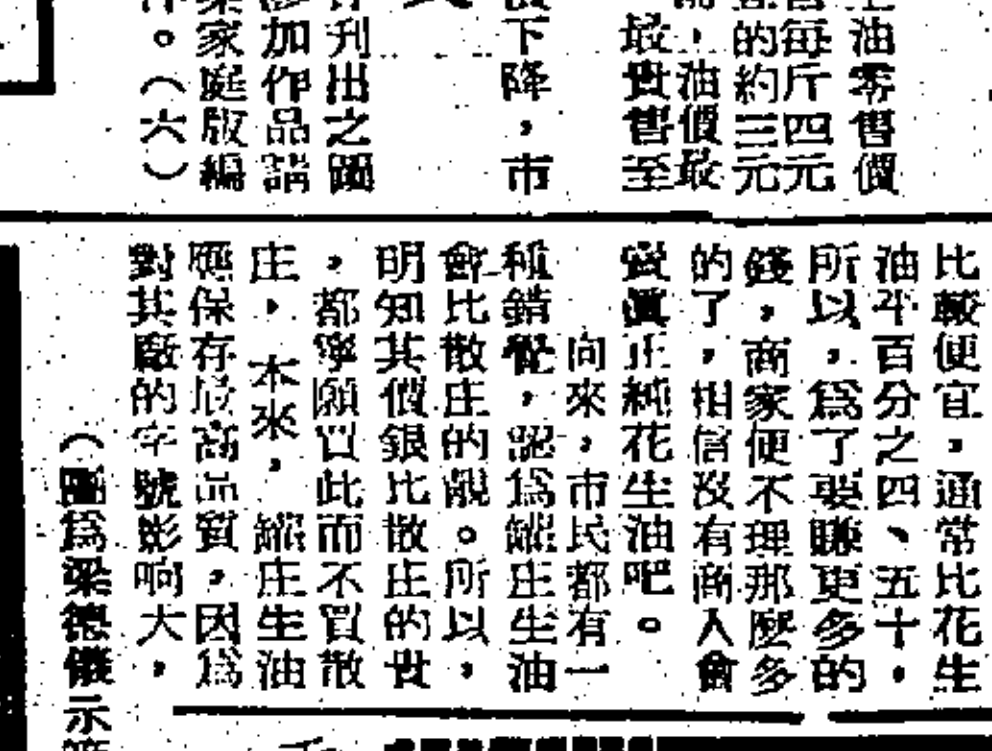 油零售價
每斤四元
的約三元
，油價最
最貴售至
下降，市
刊出之圖
加作品請
家庭版編
。（六）
比較便宜，通常比花生
油平百分之四、五十，
所以，為了要賺更多的
錢，商家便不理那麼多
的了，相信沒有商人會
賣眞正純花生油吧。
向來，市民都有一
種錯覺，認為罐庄生油
會比散庄的靚。所以，
明知其價銀比散庄的貴
，都寧願買此而不買散
庄，本來，罐庄生油
應保存最高品質，因為
對其廠的字號影响大，
（圖為梁德儀示範